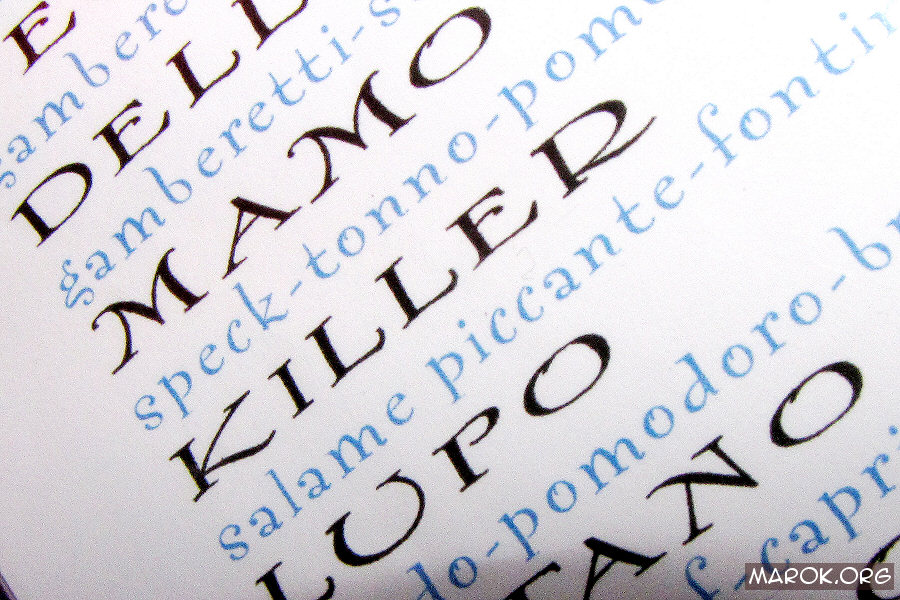 E
gambere
DELL
gamberetti-s
MAMO
speck-tonno-pomo
KILLER
salame piccante-fontin
LUPO
do-pomodoro-br
TANO
f-capri
MAROK.ORG